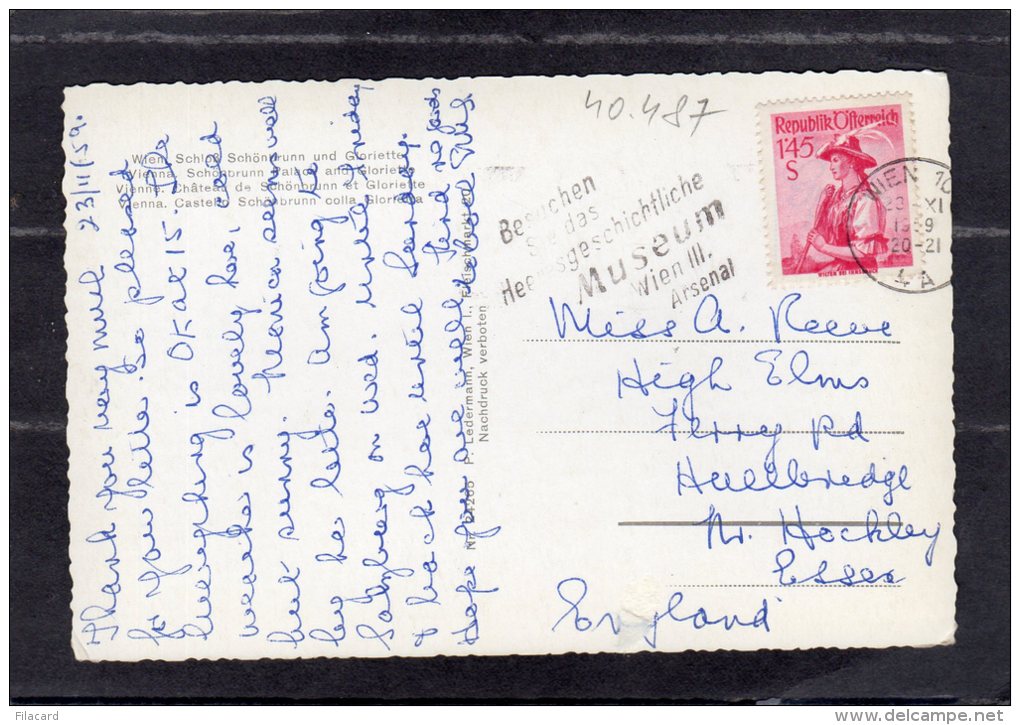 40.487
23/11/59.
Wien, Schloß Schönbrunn und Gloriette
Vienna, Schönbrunn Palace and Gloriette
Vienna. Château de Schönbrunn et Gloriette
Vienna. Castello Schönbrunn colla Glorietta
Thank you very much
for your letter. So pleased
everything is OK at 15. The
weather is lovely here, cold
but sunny. Monica seems well
Am going
Salzburg on wed. until Friday
& back here until Sunday.
Hope you are well
Nr. P. Ledermann, Wien I., Fleischmarkt 20
Nachdruck verboten
Besuchen
Sie das
Heeresgeschichtliche
Museum
Wien III.
Arsenal
Republik Österreich
1'45
S
WILTEN BEI INNSBRUCK
WIEN 10
23. XI
1959
20-21
4A
Miss A. Reeve
High Elms
Ferry Rd
Hullbridge
Nr. Hockley
Essex
England
Filacard
delcampe.net